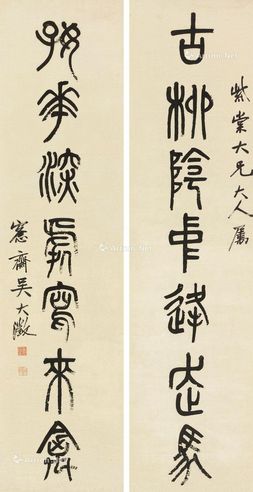 紫棠大兄大人屬
古柳陰中逢走馬
好華深處寫來禽
愙齋吳大澂